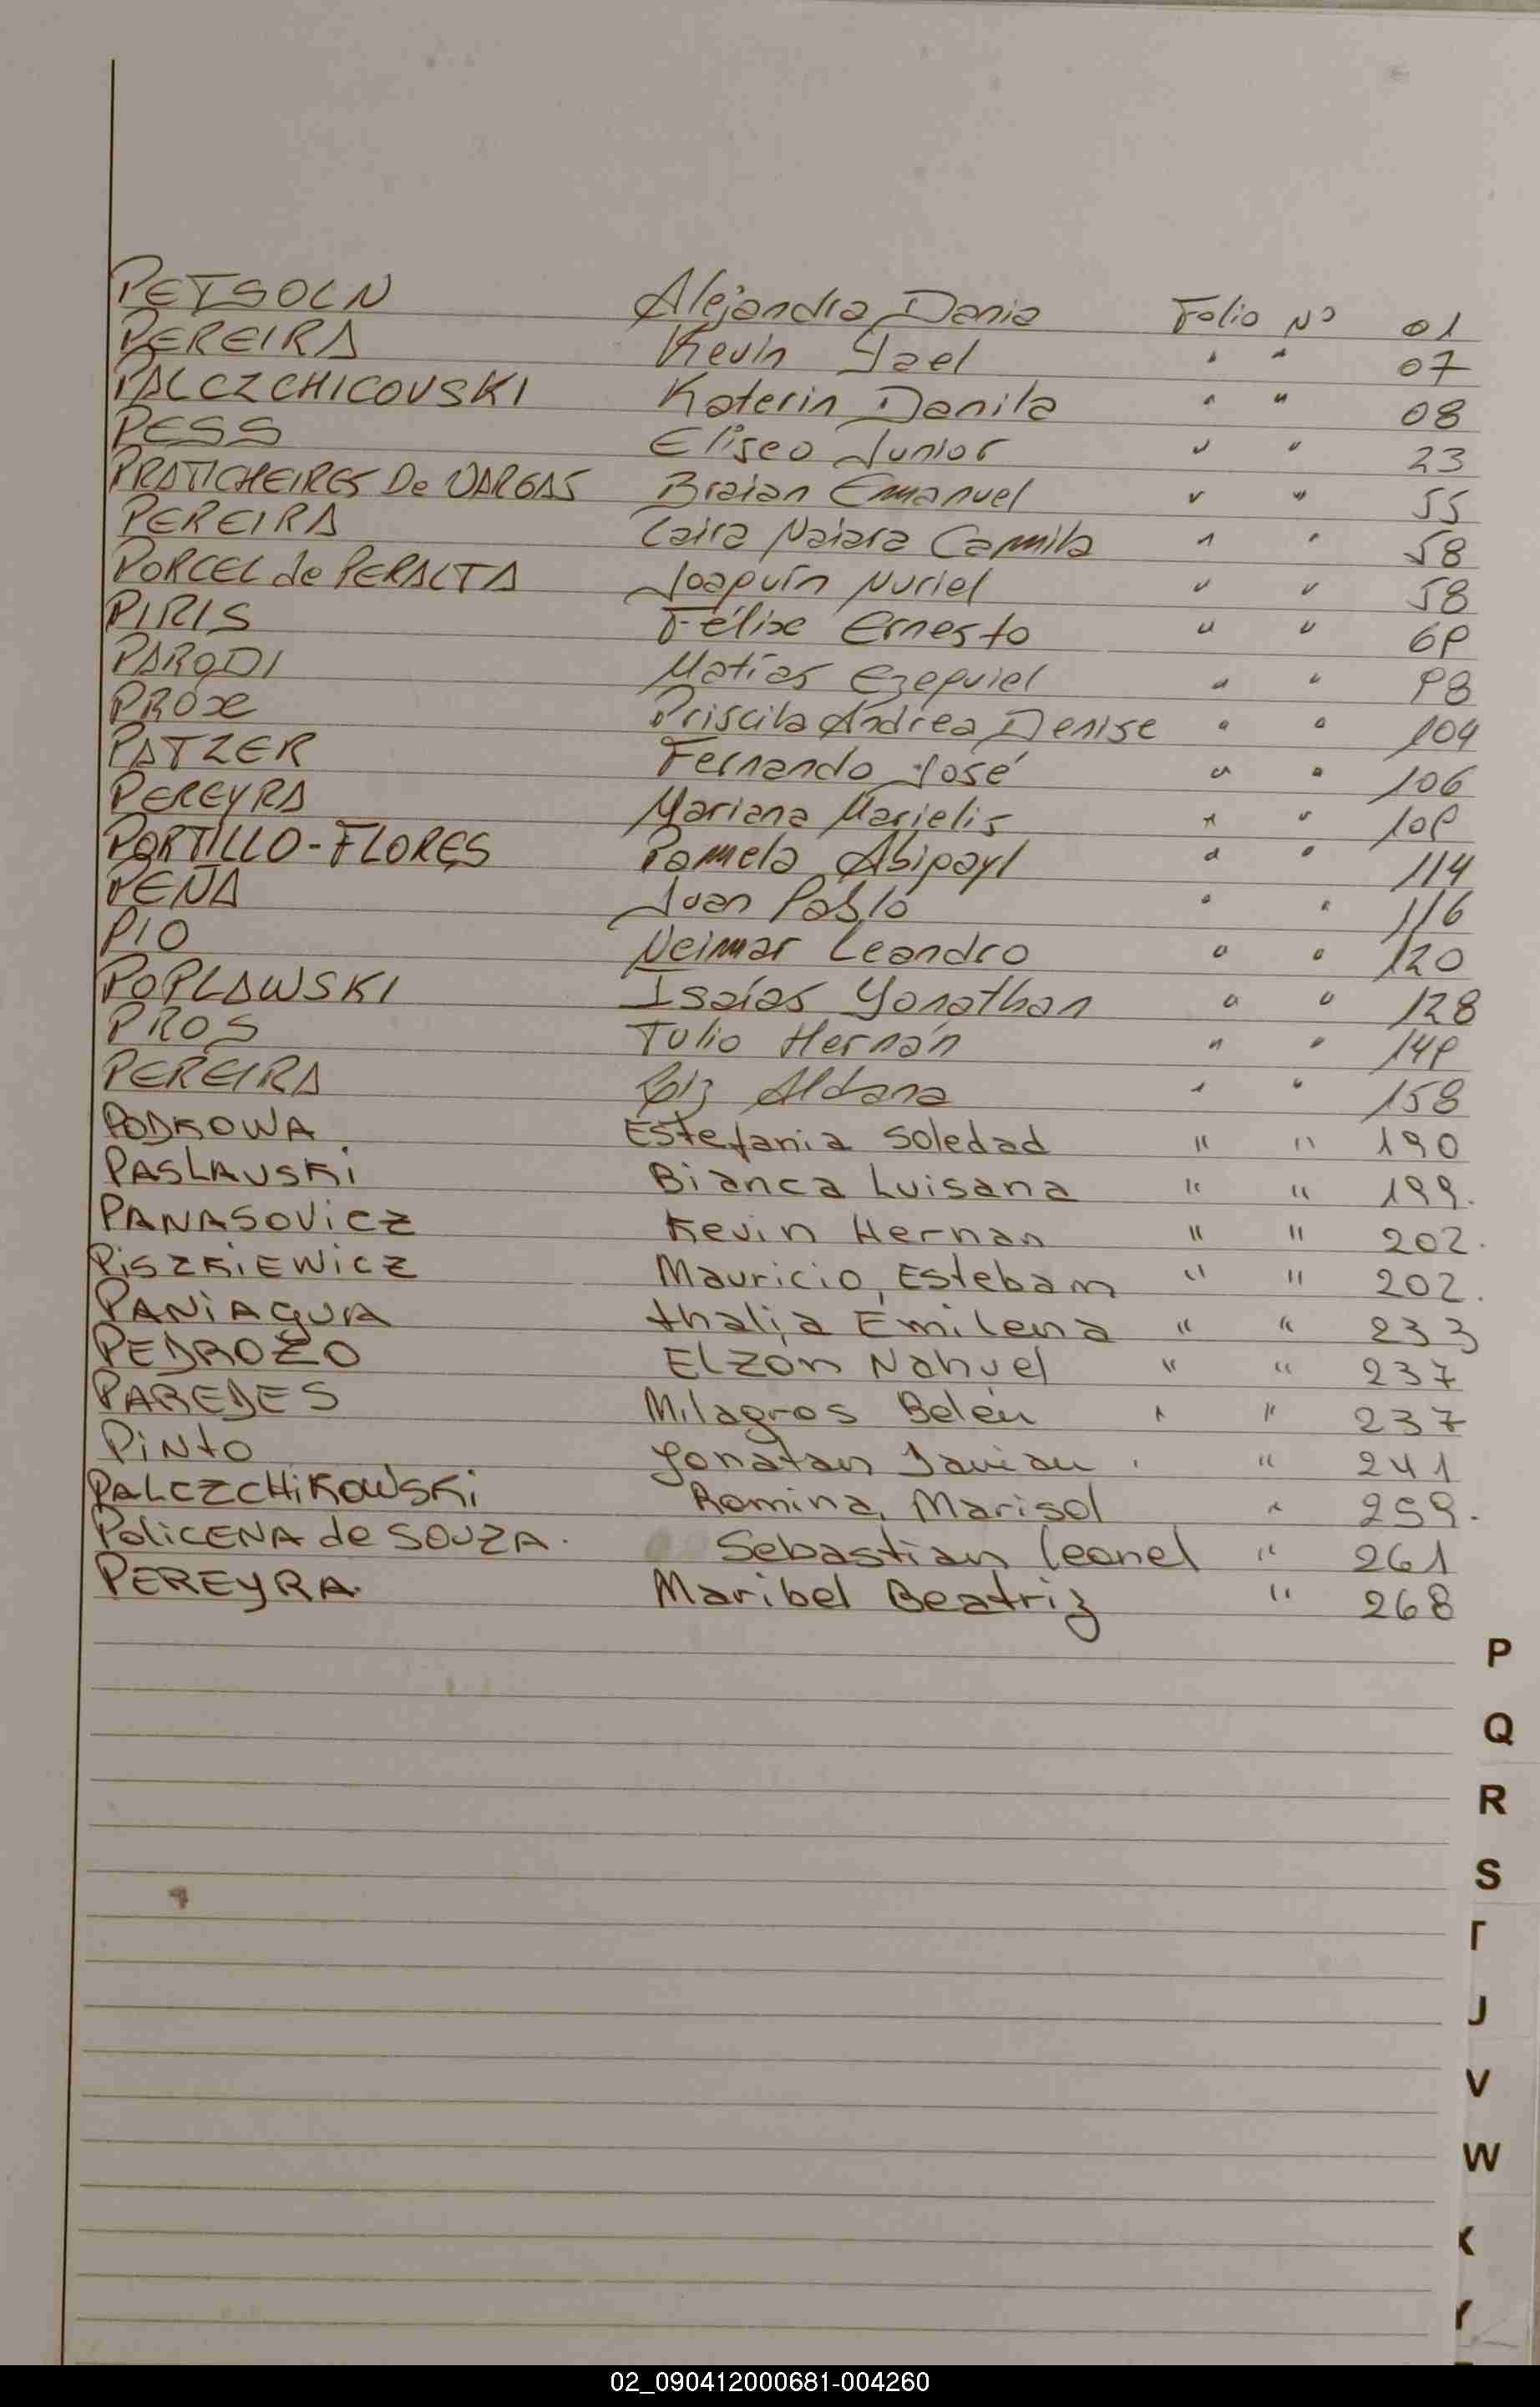 PETSOLN Alejandra Dania Folio Nº 01
PEREIRA Kevin Yael " " 07
PALCZCHICOVSKI Katerin Danila " " 08
PESS Eliseo Junior " " 23
PRATICHEIRES De VARGAS Braian Emanuel " " 55
PEREIRA Caira Naiara Camila " " 58
PORCEL de PERALTA Joaquín Nuriel " " 58
PIRIS Félix Ernesto " " 69
PARODI Matías Ezequiel " " 98
PROX Priscila Andrea Denise " " 104
PATZER Fernando José " " 106
PEREYRA Mariana Marielis " " 109
PORTILLO-FLORES Pamela Abigayl " " 114
PEÑA Juan Pablo " " 116
PIO Neimar Leandro " " 120
POPLAWSKI Isaías Yonathan " " 128
PROS Tulio Hernán " " 149
PEREIRA Liz Aldana " " 158
PODKOWA Estefania Soledad " " 190
PASLAUSKi Bianca Luisana " " 199.
PANASOViCZ Kevin Hernan " " 202.
PiSZKiEWiCZ Mauricio, Estebam " " 202.
PANiAGUA thalia Emilena " " 233
PEDROZO Elzon Nahuel " " 237
PAREDES Milagros Belén " " 237
PiNto Yonatan Javian " " 241
PALCZCHiKOWSKi Romina, Marisol " 259.
PoliCENA de SOUZA. Sebastian Leonel " 261
PEREYRA. Maribel Beatriz " 268
P
Q
R
S
T
J
V
W
X
Y
02_090412000681-004260